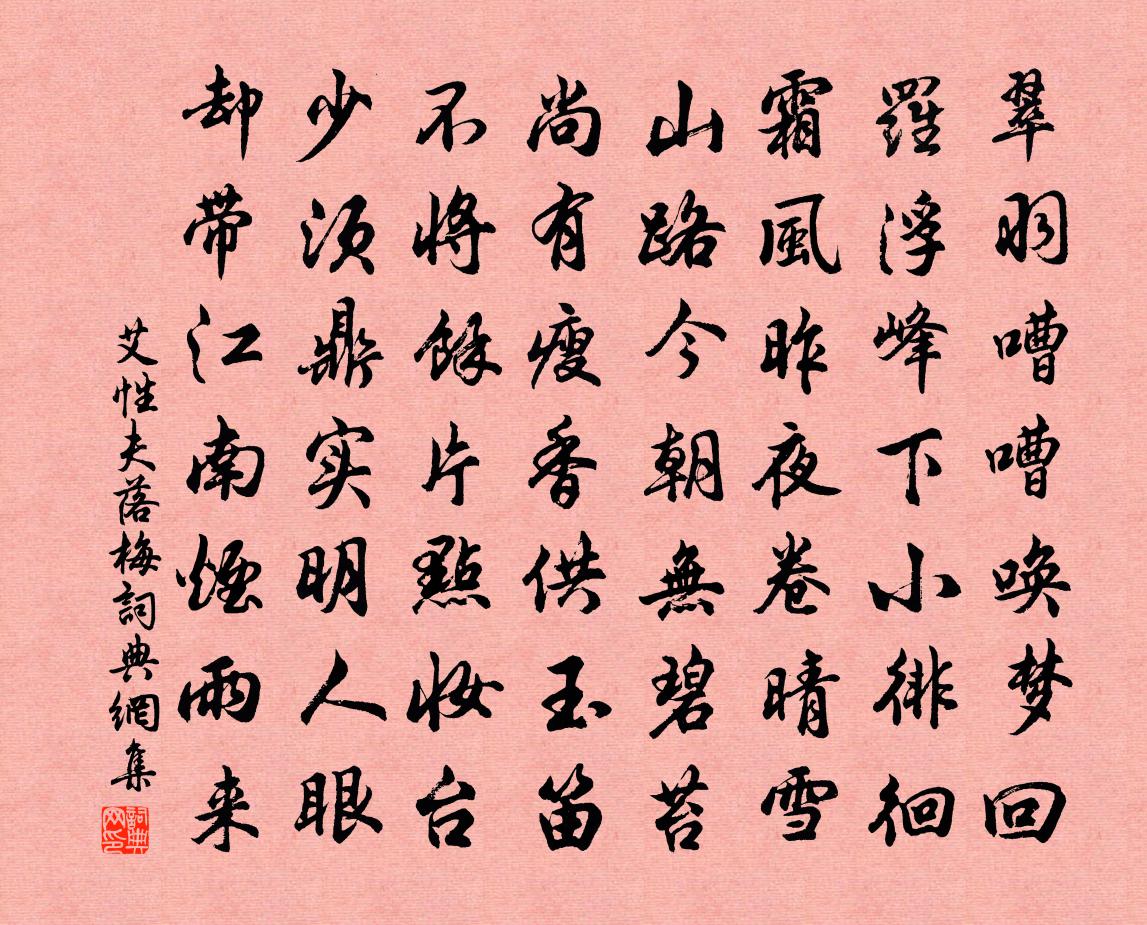 翠羽嘈嘈唤梦回
羅浮峰下小徘徊
霜風昨夜卷晴雪
山路今朝無碧苔
尚有瘦香供玉笛
不將餘片點妆台
少须鼎实明人眼
却带江南煙雨来
艾性夫落梅詞典網集
詞典网印